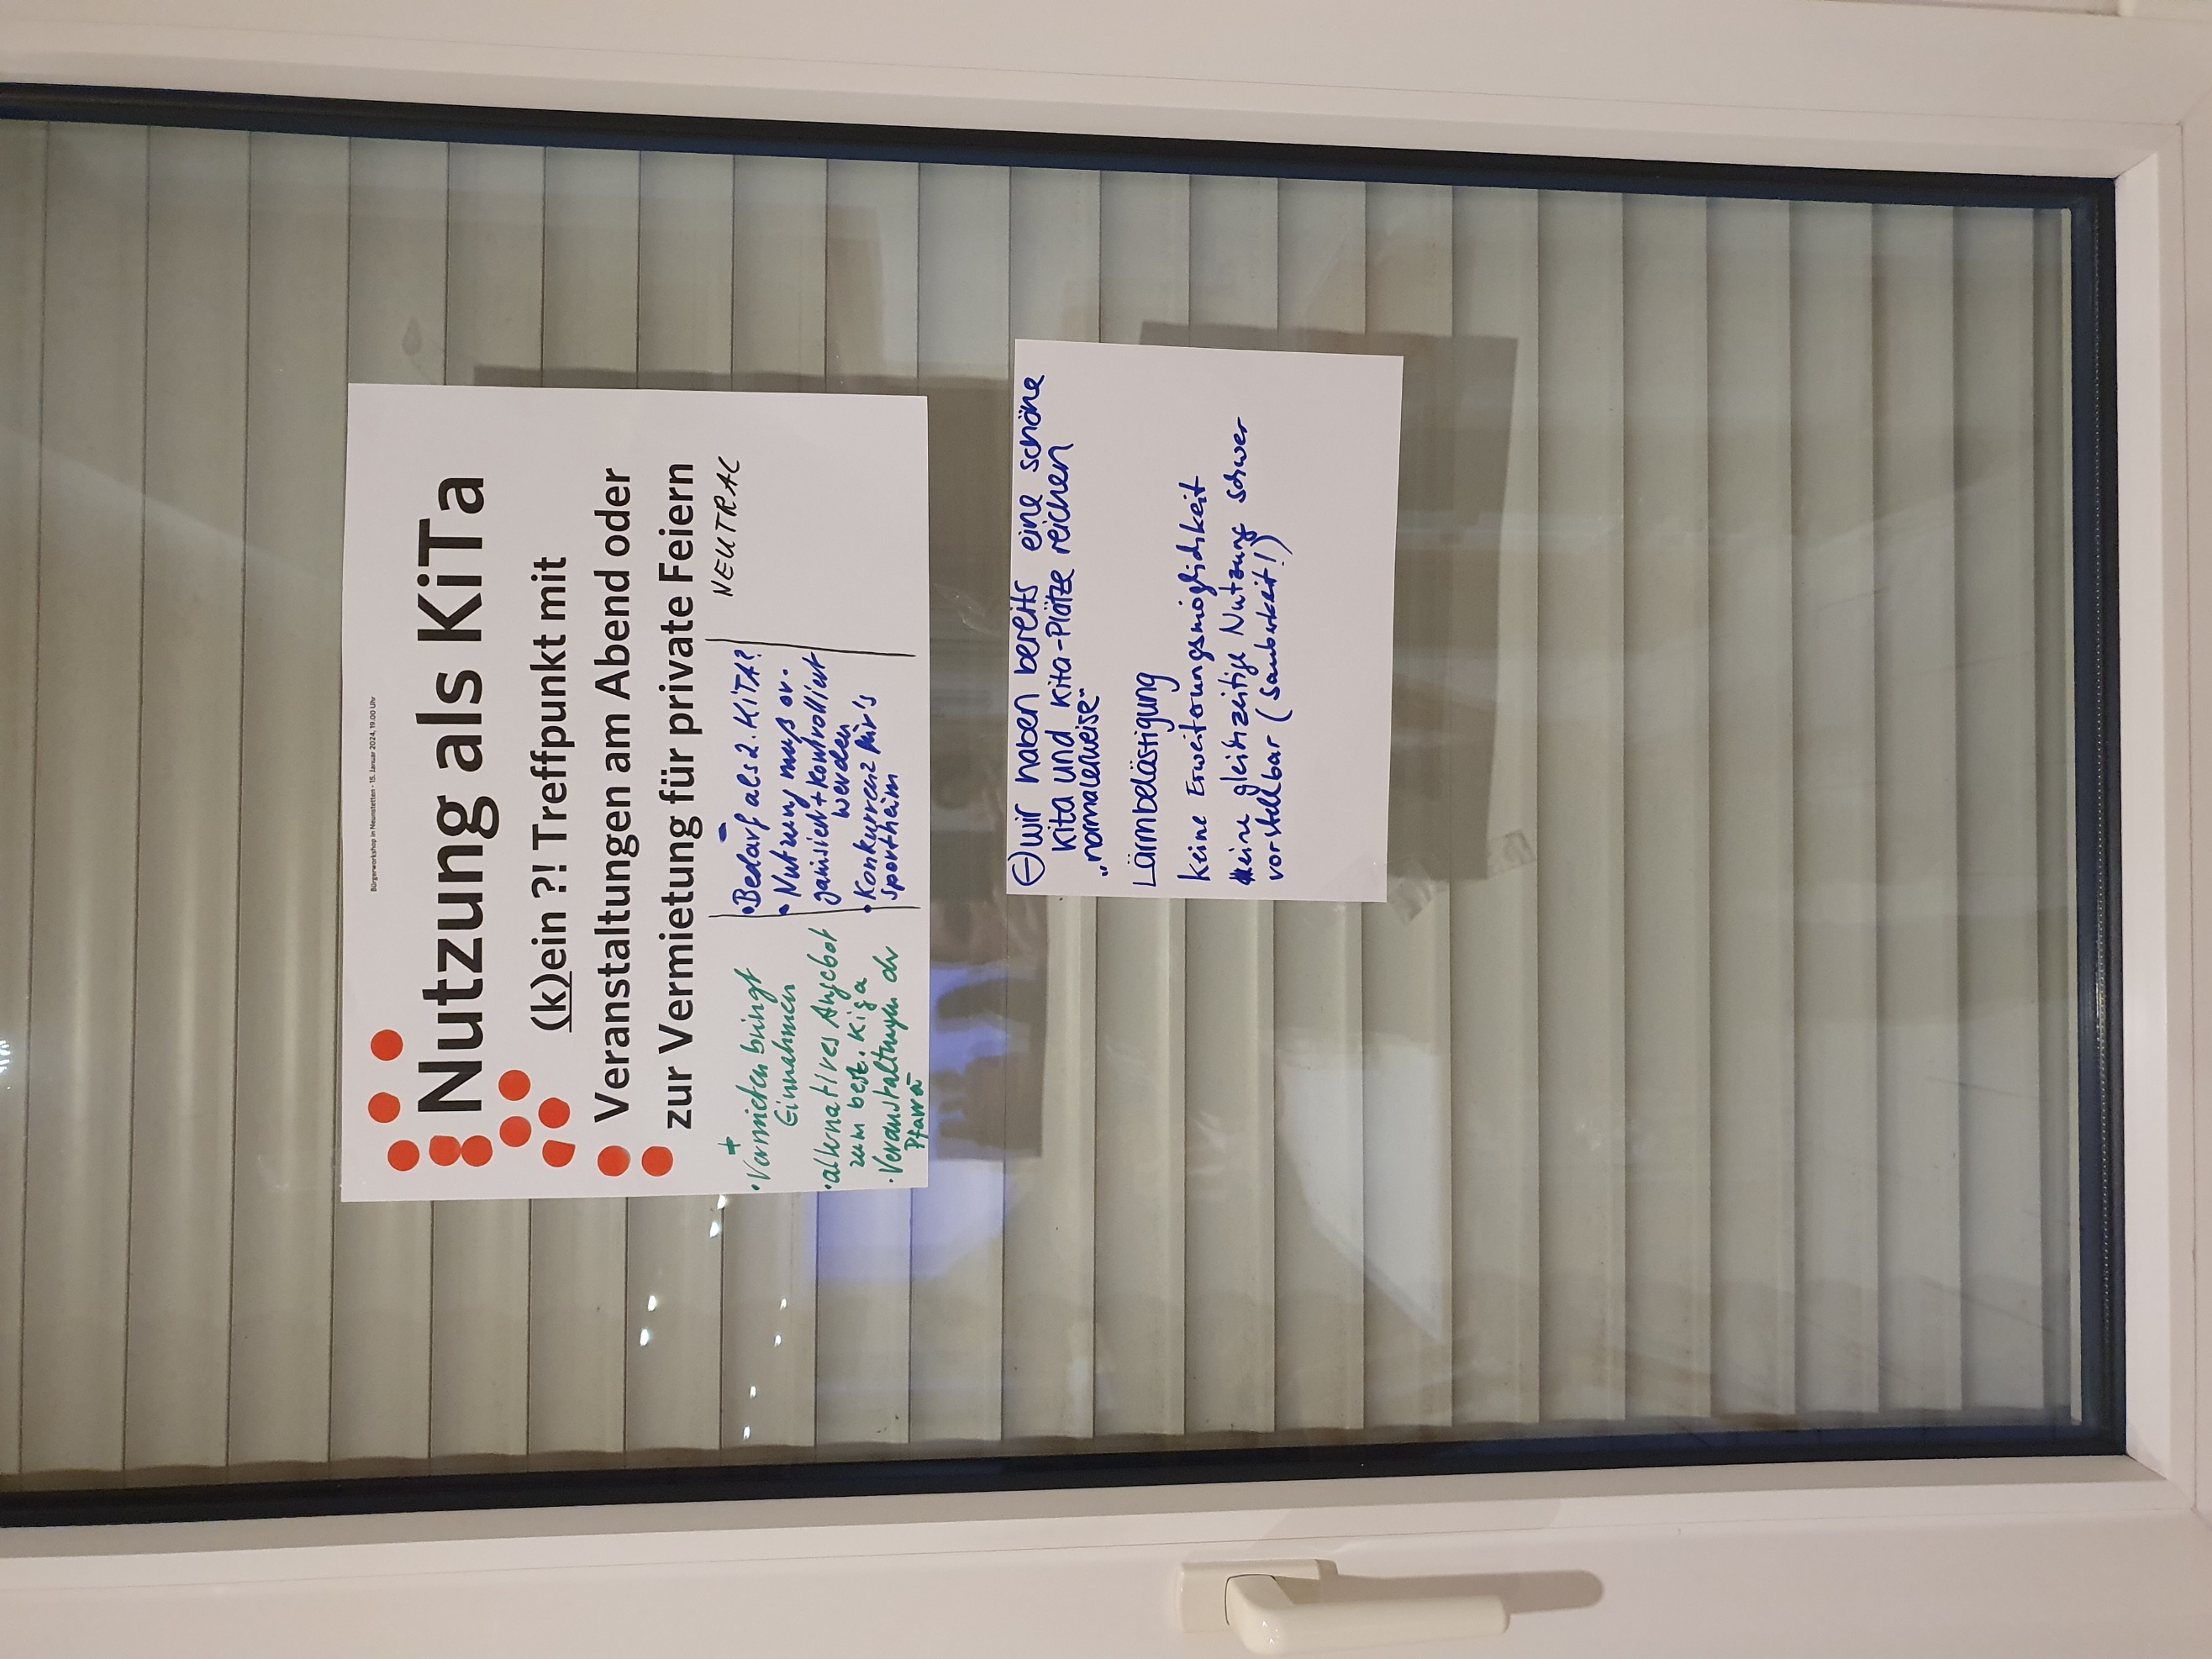 Bürgerworkshop in Neunstetten - 15. Januar 2024, 19.00 Uhr
Nutzung als KiTa
(k)ein ?! Treffpunkt mit
Veranstaltungen am Abend oder
zur Vermietung für private Feiern
+
• Vermieten bringt
Einnahmen
• alternatives Angebot
zum best. Kiga
• Veranstaltungen
–
• Bedarf als 2. KITA?
• Nutzung muß or-
ganisiert + kontrolliert
werden
• Konkurrenz für's
Sportheim
NEUTRAL
⊖ wir haben bereits eine schöne
Kita und Kita-Plätze reichen
„normalerweise"
Lärmbelästigung
keine Erweiterungsmöglichkeit
keine gleichzeitige Nutzung schwer
vorstellbar (Sauberkeit!)